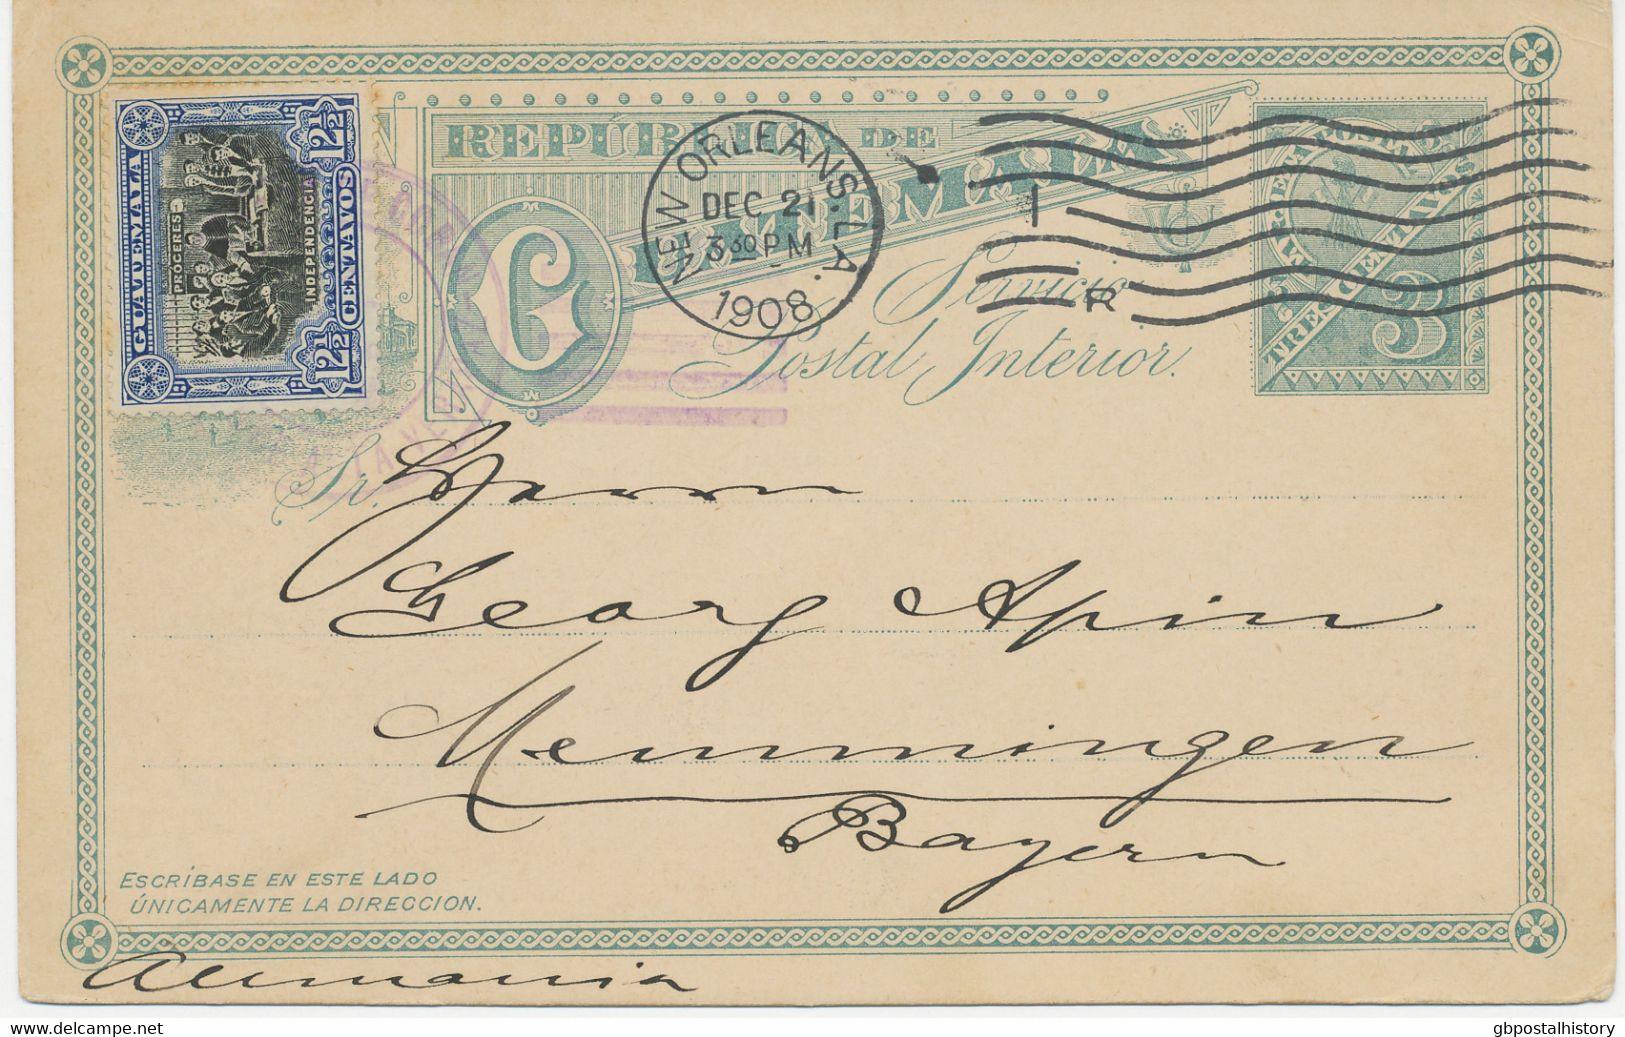 REPÚBLICA DE
GUATEMALA
Servicio
Postal Interior.
GUATEMALA
PRÓCERES
INDEPENDENCIA
12½ CENTAVOS 12½
NEW ORLEANS, LA.
DEC 21
3 30 PM
1908
R
TRES CENTAVOS
3
Sr.
Herrn
Georg Apin
Memmingen
Bayern
ESCRÍBASE EN ESTE LADO
ÚNICAMENTE LA DIRECCION.
Alemania
www.delcampe.net
gbpostalhistory